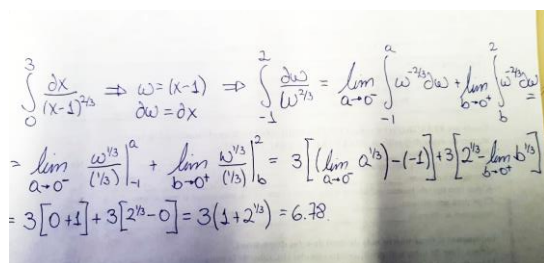 ∫₀³ ∂x/(x-1)^{2/3} ⇒ ω = (x-1) ⇒ ∫₋₁² ∂ω/ω^{2/3} = lim_{a→0⁻} ∫₋₁ᵃ ω^{-2/3} ∂ω + lim_{b→0⁺} ∫_b² ω^{-2/3} ∂ω =
∂ω = ∂x
= lim_{a→0⁻} ω^{1/3}/(1/3) |₋₁ᵃ + lim_{b→0⁺} ω^{1/3}/(1/3) |_b² = 3[(lim_{a→0⁻} a^{1/3}) - (-1)] + 3[2^{1/3} - lim_{b→0⁺} b^{1/3}]
= 3[0+1] + 3[2^{1/3} - 0] = 3(1+2^{1/3}) = 6.78.